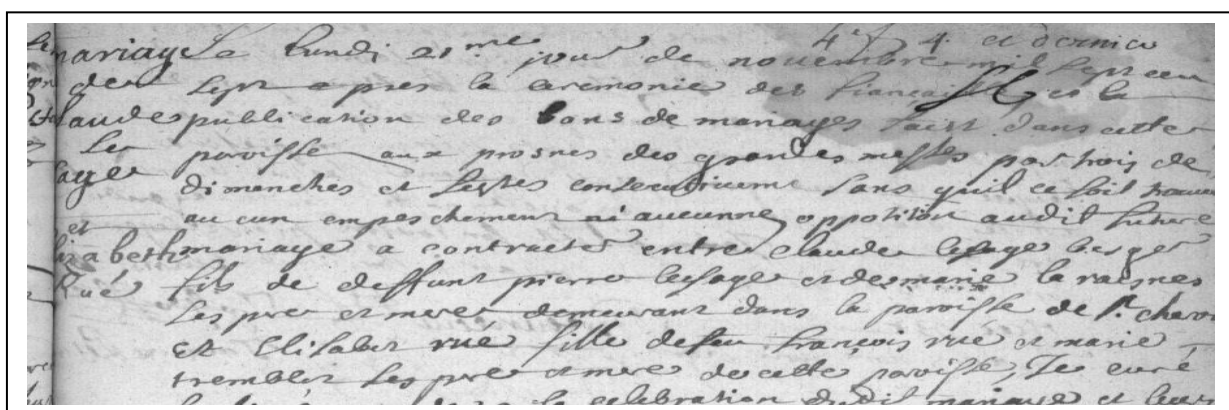 4e & 4. et dernier
mariage Le Lundi 21.me jour de novembre mil sept cen
de sept apres la ceremonie des fiançailles et la
Claude publication des bans de mariages faist dans cette
Le paroisse aux prosnes des grandes messes par trois de
sage dimanches et festes consecutivemt sans quil ce soit trouve
et au cun empeschement ni aucunne opposition audit future
Elizabeth mariage a contracter entre claude lesage berger
Rué fils de deffunt pierre lesage et de marie la raisnes
ses pere et mere demeurant dans la paroisse de St. cheron
et Elisabet rue fille de feu françois rue et marie
trembler ses pere et mere de cette paroisse, Je curé
la celebration dudit mariage et leurs